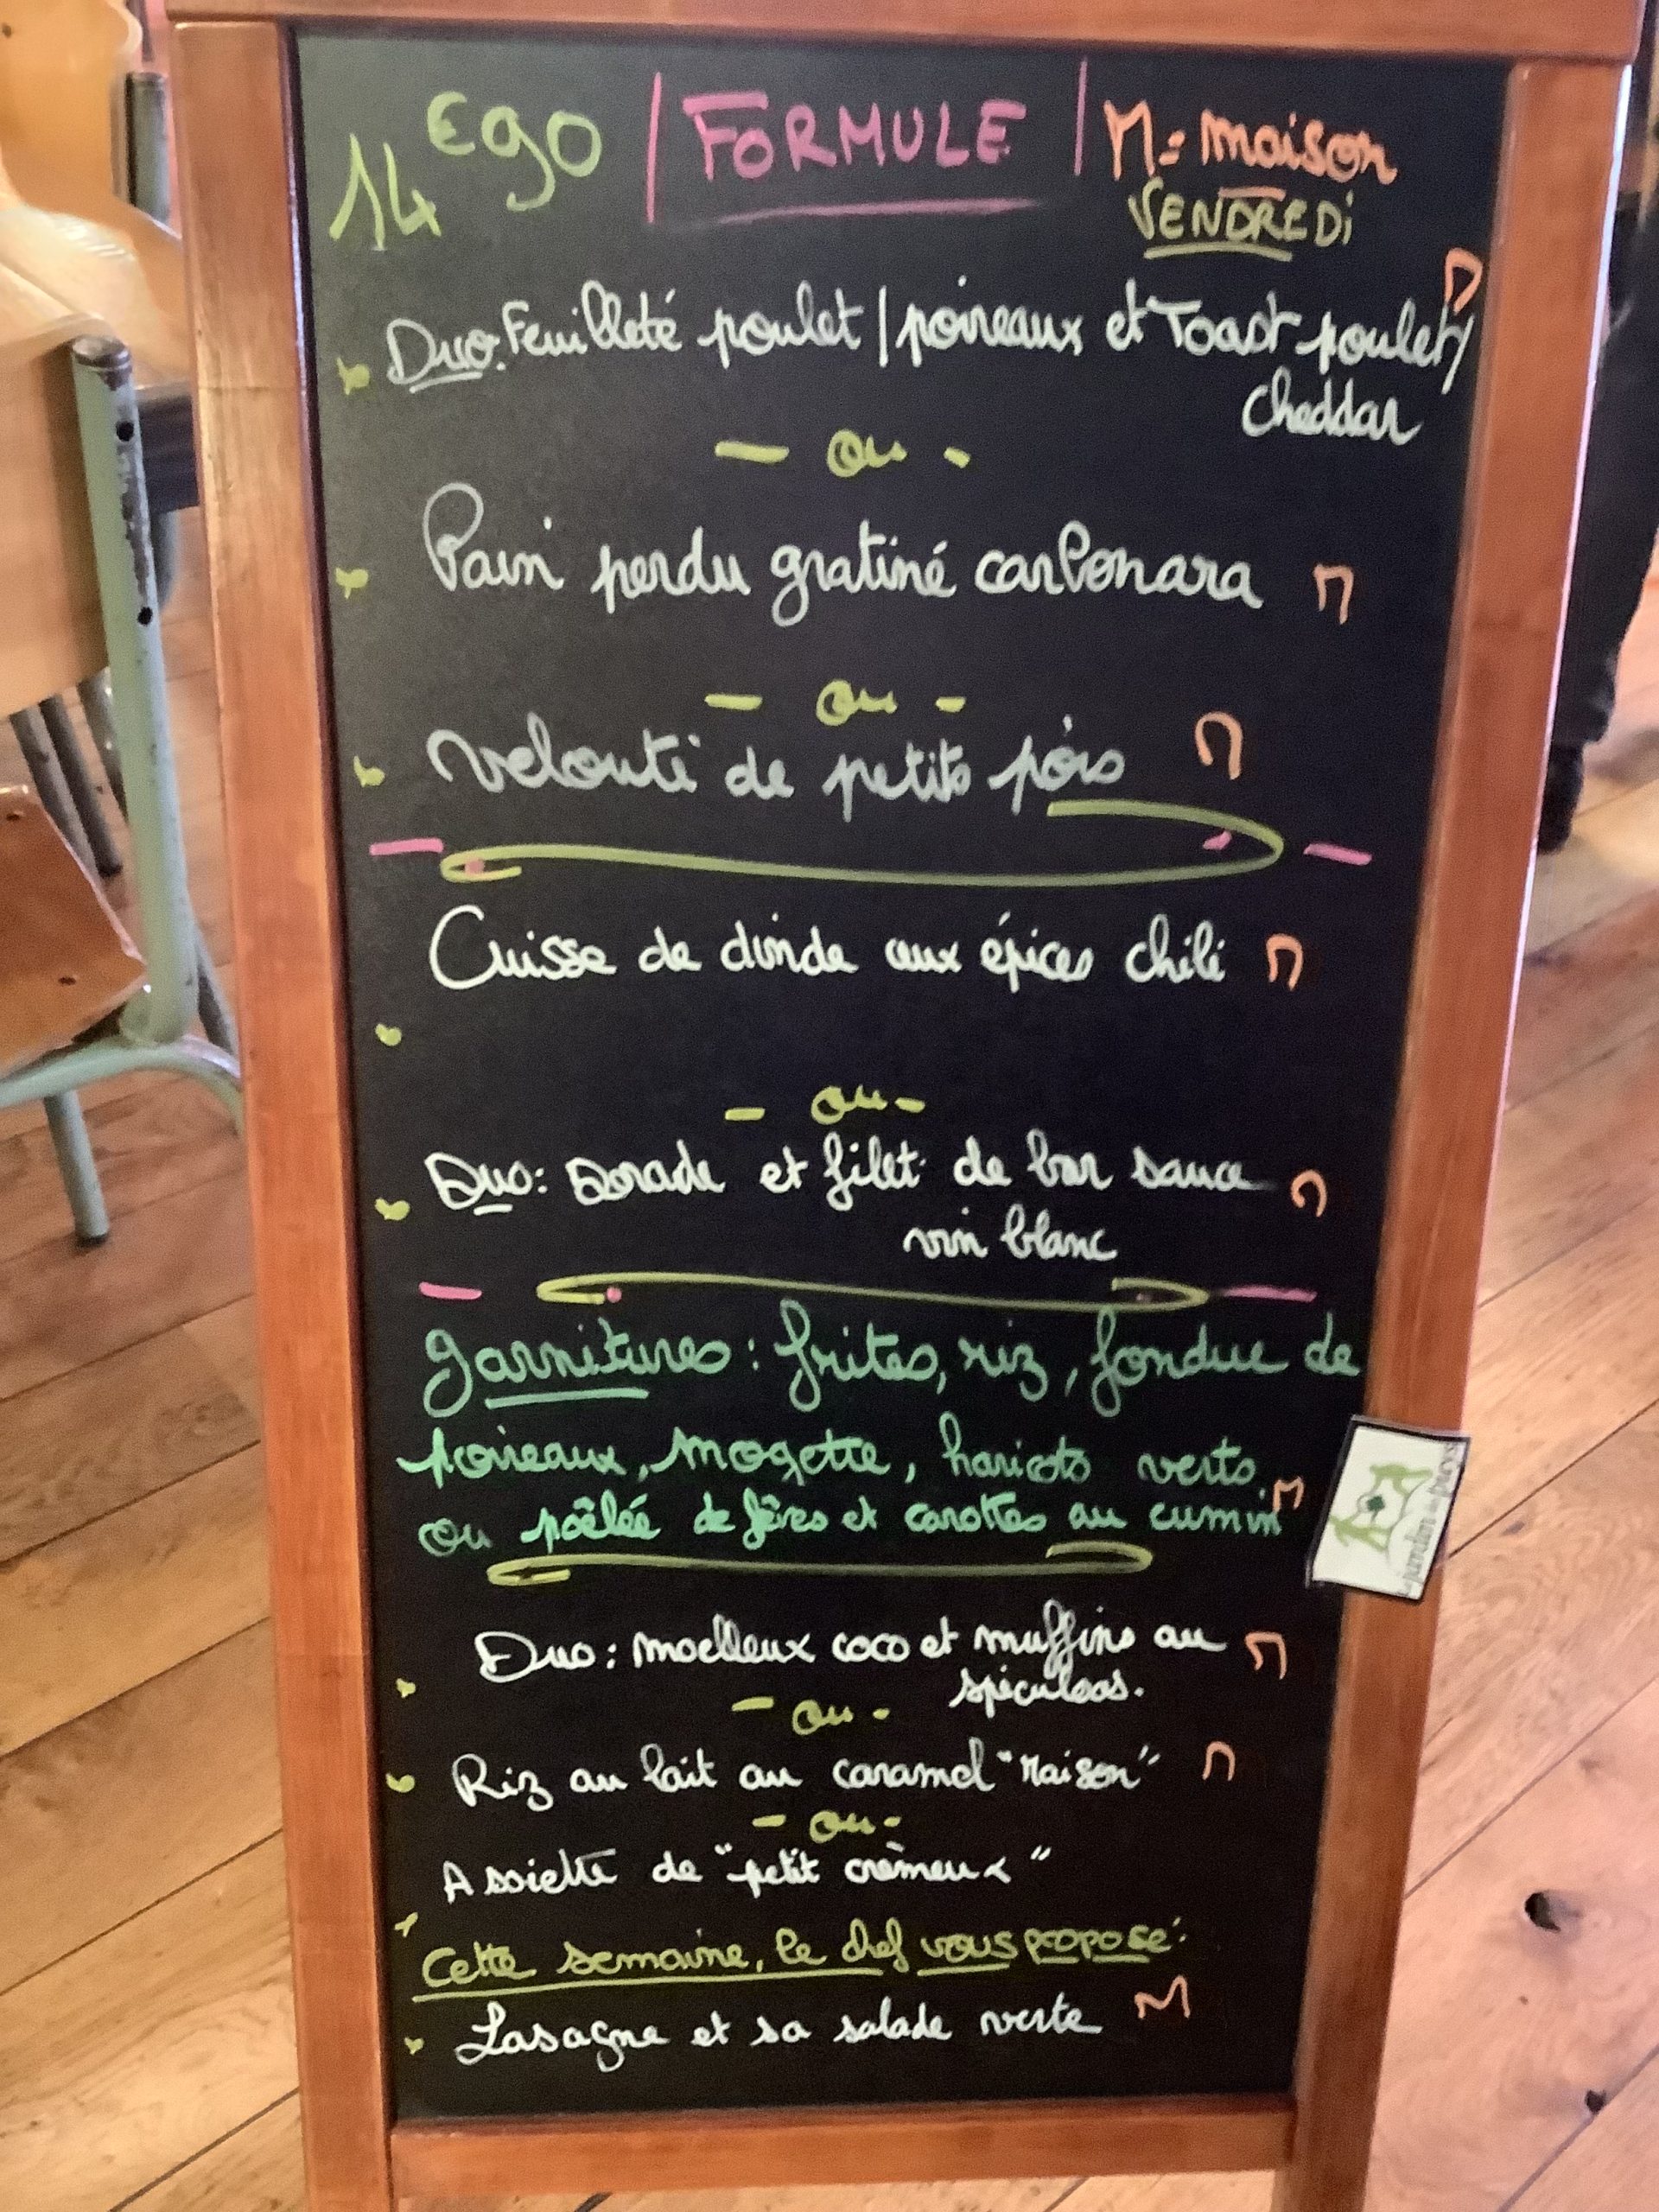 14€90 | FORMULE | M = maison
VENDREDi
Duo: Feuilleté poulet / poireaux et Toast poulet/ M
cheddar
- ou -
Pain perdu gratiné carbonara M
- ou -
Velouté de petits pois M
Cuisse de dinde aux épices chili M
- ou -
Duo: Dorade et filet de bar sauce M
vin blanc
garnitures : frites, riz, fondue de
poireaux, mogette, haricots verts
ou poêlée de fêves et carottes au cumin M
Duo : moelleux coco et muffins au M
spéculoos.
- ou -
Riz au lait au caramel "Maison" M
- ou -
Assiette de "petit crèmeux"
Cette semaine, le chef vous propose :
Lasagne et sa salade verte M